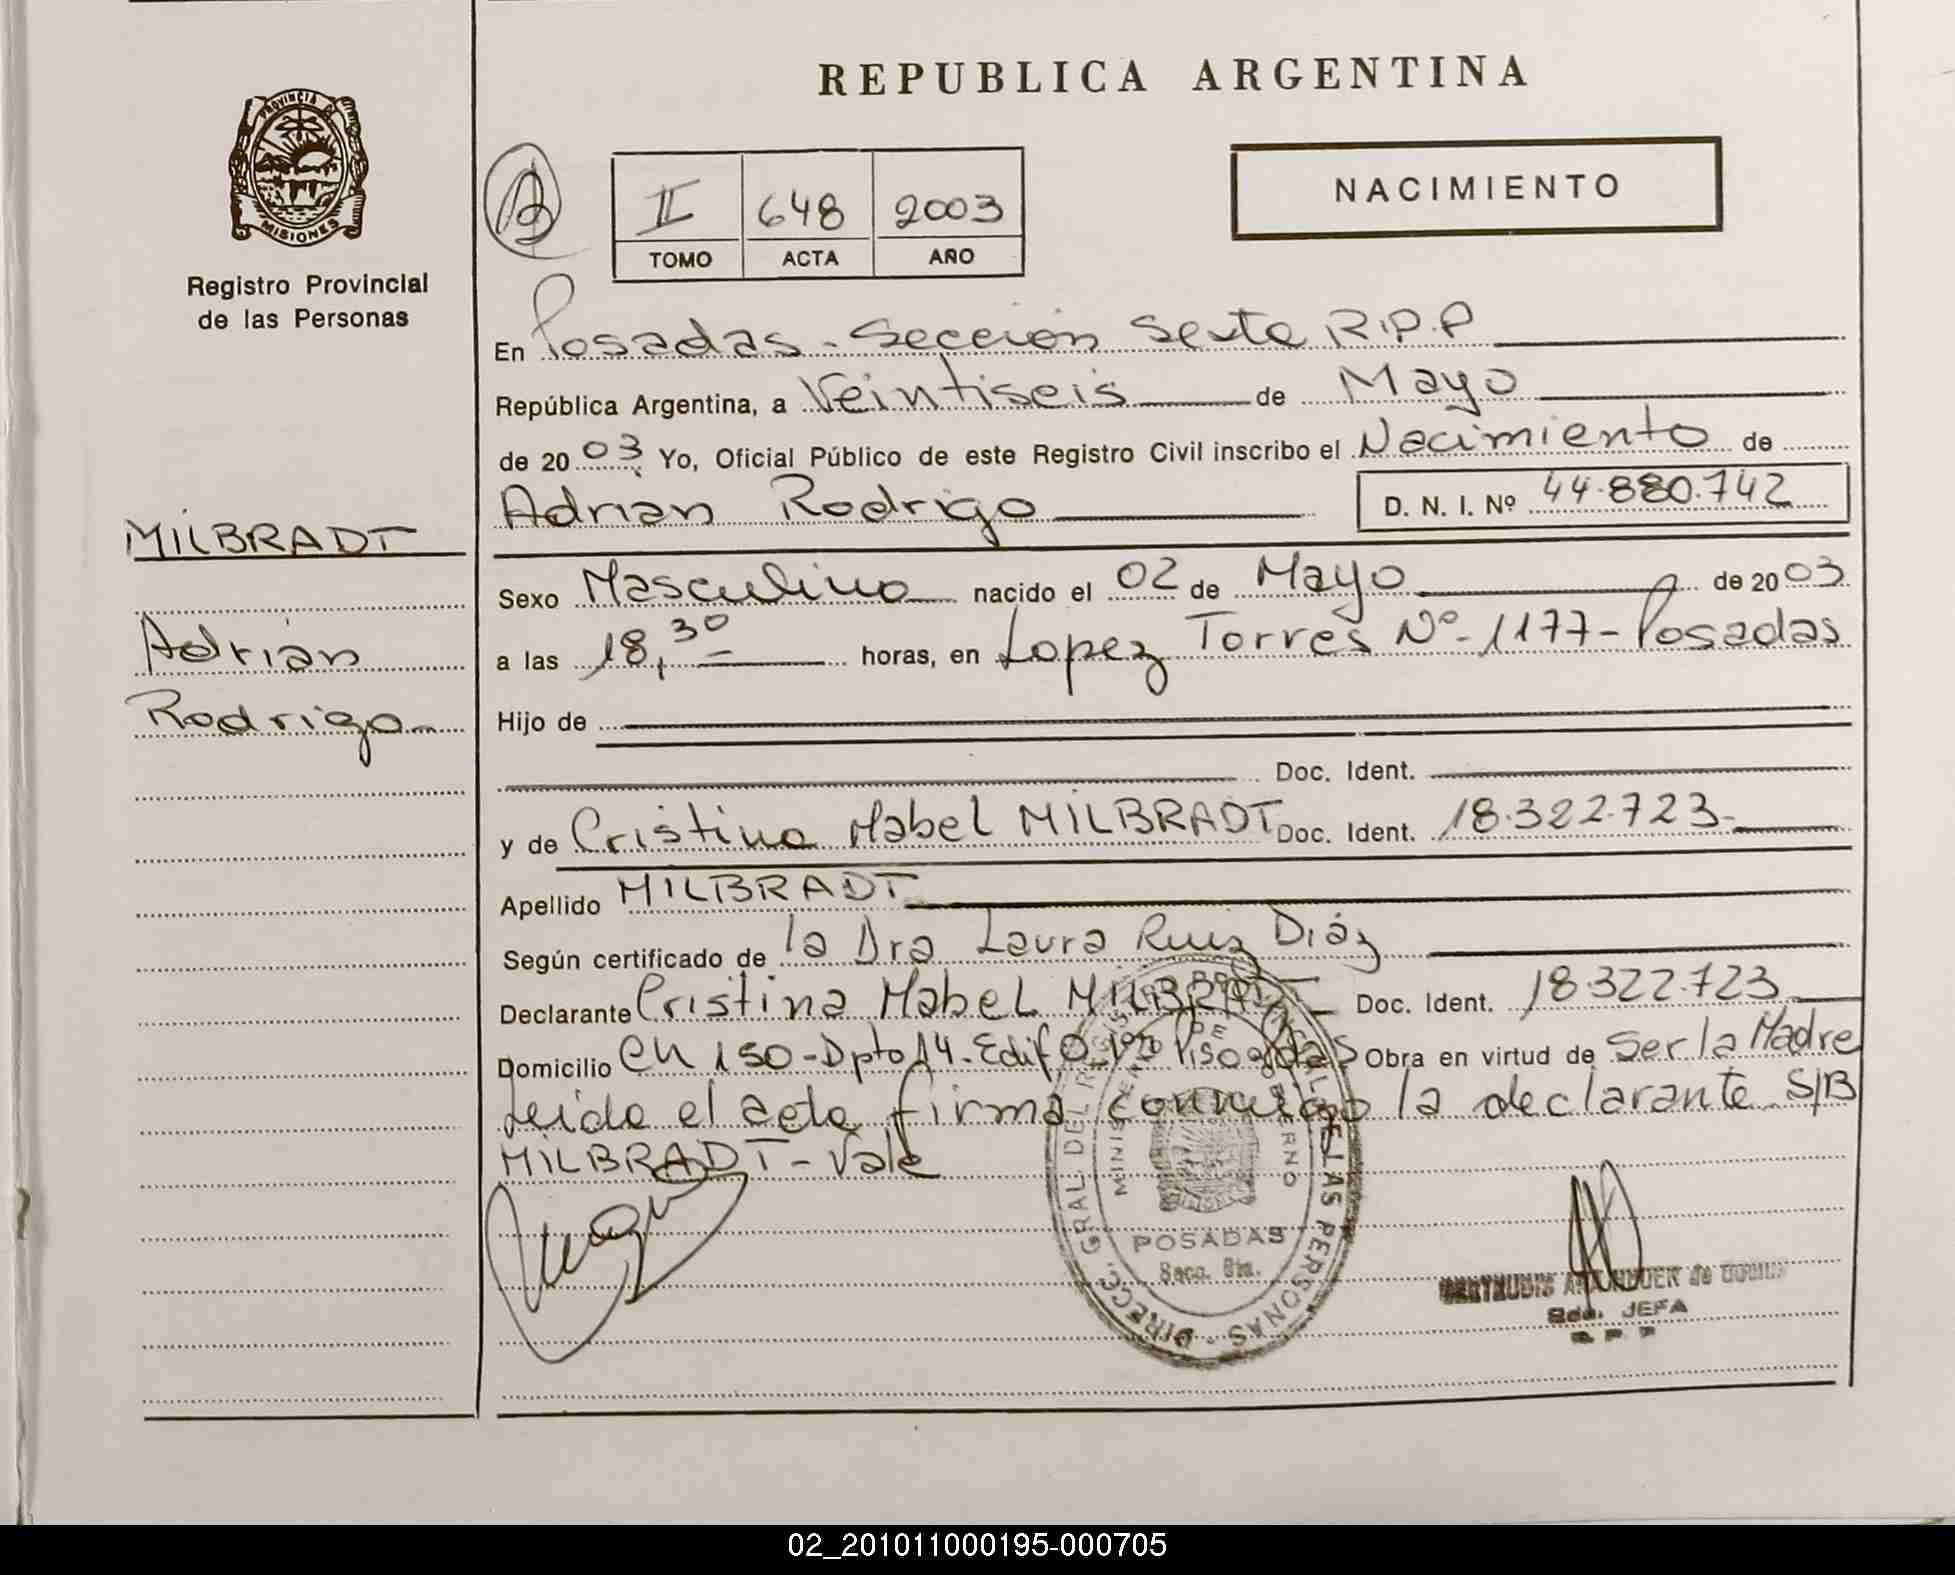 REPUBLICA ARGENTINA
PROVINCIA DE
MISIONES
Registro Provincial
de las Personas
II 648 2003
TOMO ACTA AÑO
NACIMIENTO
En Posadas - Sección Sexta R.P.P
República Argentina, a Veintiseis de Mayo
de 2003 Yo, Oficial Público de este Registro Civil inscribo el Nacimiento de
Adrián Rodrigo D. N. I. Nº 44.880.742
MILBRADT
Adrián
Rodrigo
Sexo Masculino nacido el 02 de Mayo de 2003
a las 18,30 horas, en Lopez Torres Nº-1177-Posadas
Hijo de
Doc. Ident.
y de Cristina Mabel MILBRADT Doc. Ident. 18.322.723-
Apellido MILBRADT
Según certificado de la Dra Laura Ruiz Diáz
Declarante Cristina Mabel MILBRADT Doc. Ident. 18.322.723
Domicilio Ch 150-Dpto 14-Edif. Obra en virtud de Ser la Madre
Leida el acta firma conmigo la declarante S/B
MILBRADT - Vale
DIRECC. GRAL DEL REGIS DE LAS PERSONAS
MINIS DE GOBIERNO
POSADAS
Secc. 6ta.
GERTRUDIS
JEFA
R. P. P
02_201011000195-000705